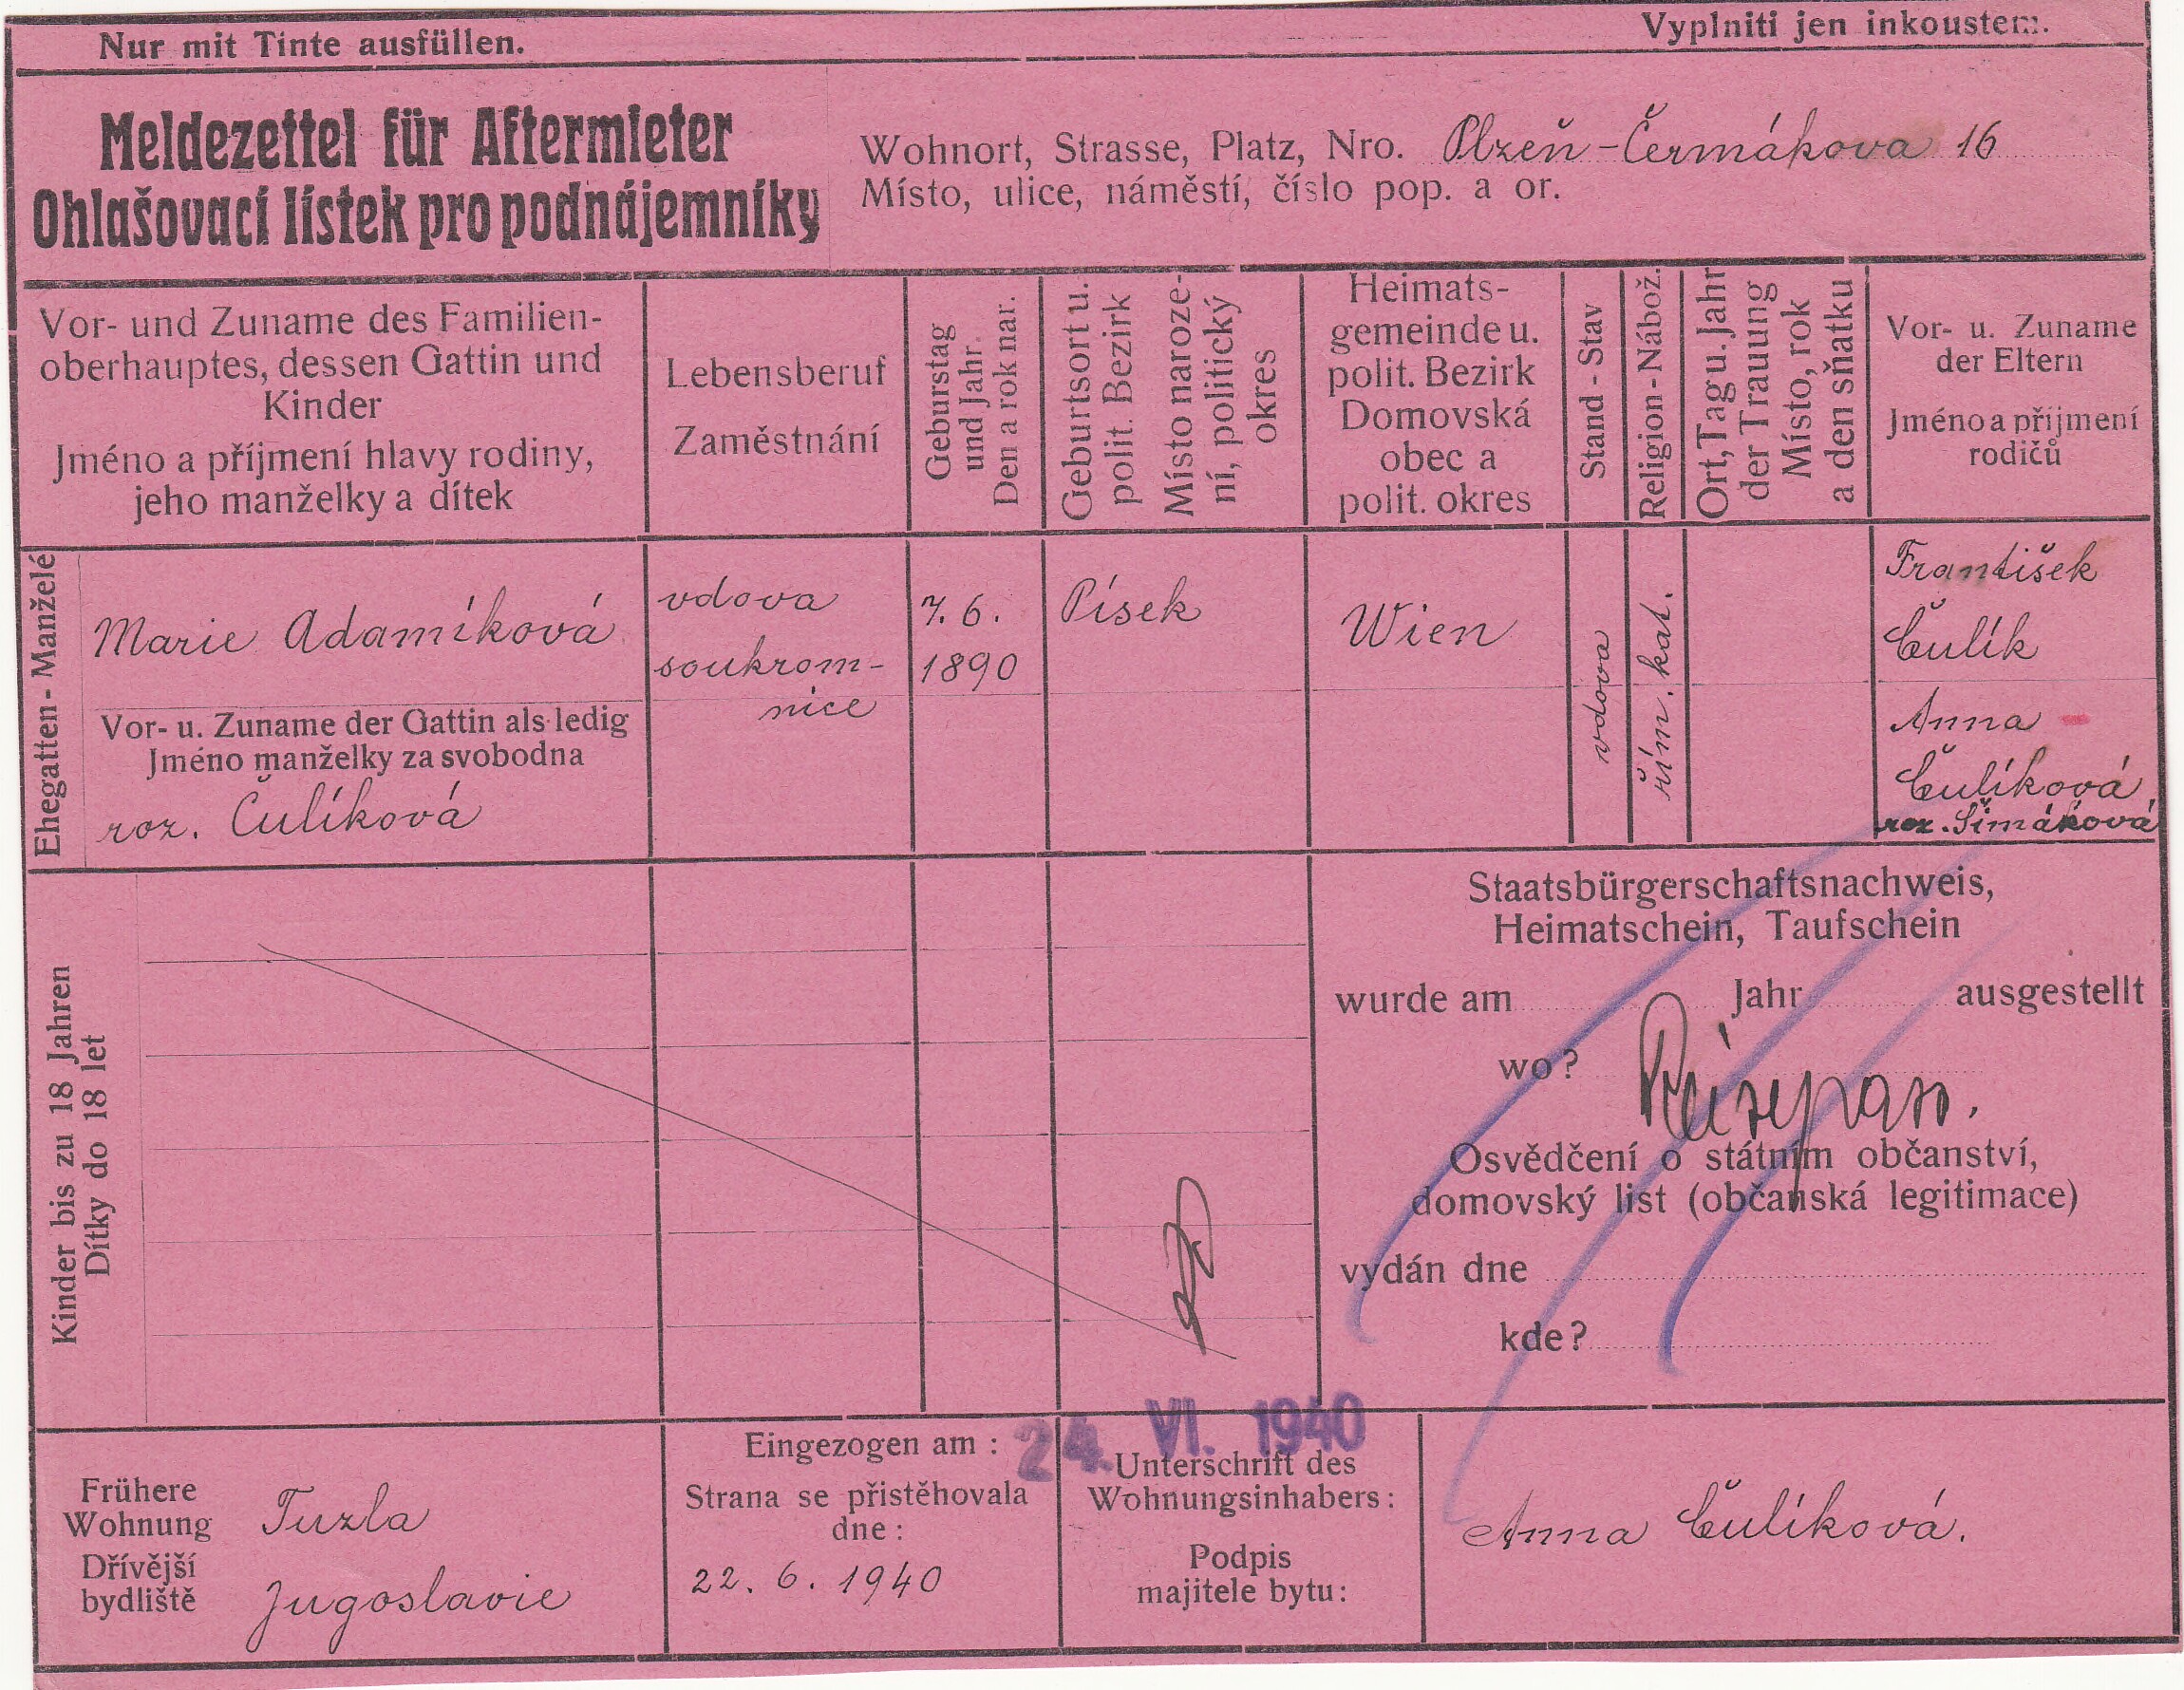 Nur mit Tinte ausfüllen.
Vyplniti jen inkoustem.
Meldezettel für Aftermieter
Ohlašovací lístek pro podnájemníky
Wohnort, Strasse, Platz, Nro. Plzeň - Čermákova 16
Místo, ulice, náměstí, číslo pop. a or.
Vor- und Zuname des Familien-
oberhauptes, dessen Gattin und
Kinder
Jméno a příjmení hlavy rodiny,
jeho manželky a dítek
Lebensberuf
Zaměstnání
Geburstag
und Jahr.
Den a rok nar.
Geburtsort u.
polit. Bezirk
Místo naroze-
ní, politický
okres
Heimats-
gemeinde u.
polit. Bezirk
Domovská
obec a
polit. okres
Stand - Stav
Religion - Nábož.
Ort, Tag u. Jahr
der Trauung
Místo, rok
a den sňatku
Vor- u. Zuname
der Eltern
Jméno a příjmení
rodičů
Ehegatten - Manželé
Marie Adamíková
Vor- u. Zuname der Gattin als ledig
Jméno manželky za svobodna
roz. Čulíková
vdova
soukrom-
nice
7. 6.
1890
Písek
Wien
vdova
řím. kat.
František
Čulík
Anna
Čulíková
roz. Šimáková
Kinder bis zu 18 Jahren
Dítky do 18 let
Staatsbürgerschaftsnachweis,
Heimatschein, Taufschein
wurde am Jahr ausgestellt
wo?
Reisepass.
Osvědčení o státním občanství,
domovský list (občanská legitimace)
vydán dne
kde?
Frühere
Wohnung
Dřívější
bydliště
Tuzla
Jugoslavie
24. VI. 1940
Eingezogen am :
Strana se přistěhovala
dne :
22. 6. 1940
Unterschrift des
Wohnungsinhabers :
Podpis
majitele bytu :
Anna Čulíková.